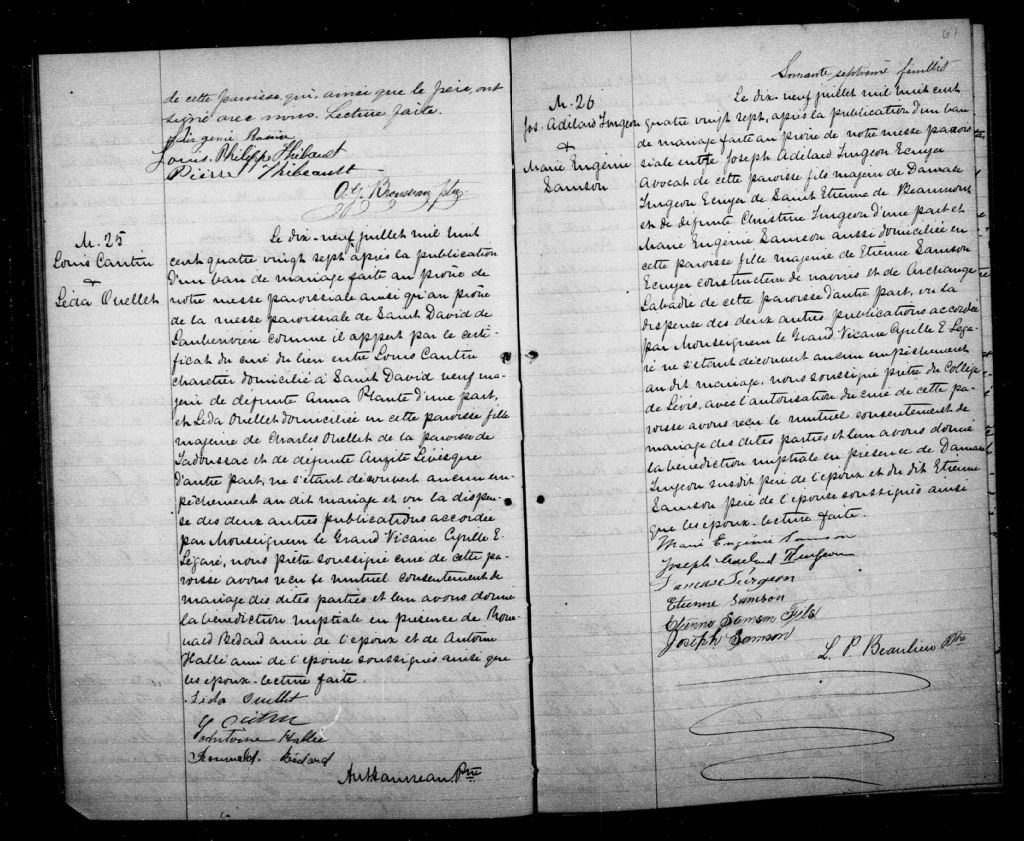 de cette paroisse qui, ainsi que le père, ont
signé avec nous. Lecture faite.
Louis Philippe Thibault
Pierre Thibeault
M. 25
Louis Cantin
+
Léda Ouellet
Le dix-neuf juillet mil huit
cent quatre vingt sept après la publication
d'un ban de mariage faite au prône de
notre messe paroissiale ainsi qu'au prône
de la messe paroissiale de Saint David de
Lauberivière comme il appert par le certi-
ficat du curé du lieu entre Louis Cantin
charetier domicilié à Saint David veuf ma-
jeur de défunte Anna Plante d'une part,
et Léda Ouellet domiciliée en cette paroisse fille
majeure de Charles Ouellet de la paroisse de
Tadoussac et de défunte Auzite Lévèsque
d'autre part, ne s'étant découvert aucun em-
pêchement au dit mariage et vu la dispen-
se des deux autres publications accordée
par Monseigneur le Grand Vicaire Cyrille E.
Légaré, nous prêtre soussigné curé de cette pa-
roisse avons reçu le mutuel consentement de
mariage des dites parties et leur avons donné
la bénédiction nuptiale en présence de Rom-
uald Bédard ami de l'époux et de Antoine
Hallé ami de l'épouse soussignés ainsi que
les époux. lecture faite.
Léda Ouellet
Antoine Hallée
Romuald. Bédard
61
Soixante septième feuillet
M. 26
Jos. Adélard Turgeon
+
Marie Eugénie
Samson
Le dix-neuf juillet mil huit cent
quatre vingt sept, après la publication d'un ban
de mariage faite au prône de notre messe parois-
siale entre Joseph Adélard Turgeon Ecuyer
Avocat de cette paroisse fils majeur de Damase
Turgeon Ecuyer de Saint Etienne de Beaumont
et de défunte Christine Turgeon d'une part et
Marie Eugénie Samson aussi domiciliée en
cette paroisse fille majeure de Etienne Samson
Ecuyer constructeur de navires et de Archange
Labadie de cette paroisse d'autre part, vu la
dispense des deux autres publications accordée
par Monseigneur le Grand Vicaire Cyrille E. Léga-
ré ne s'étant découvert aucun empêchement
au dit mariage, nous soussigné prêtre du Collège
de Lévis, avec l'autorisation du curé de cette pa-
roisse avons reçu le mutuel consentement de
mariage des dites parties et leur avons donné
la bénédiction nuptiale en présence de Damase
Turgeon susdit père de l'époux et du dit Etienne
Samson père de l'épouse soussignés ainsi
que les époux. lecture faite.
Marie Eugénie Samson
Joseph Adélard Turgeon
Damase Turgeon
Etienne Samson
Etienne Samson Fils
Joseph Samson
L. P. Beaulieu Ptre